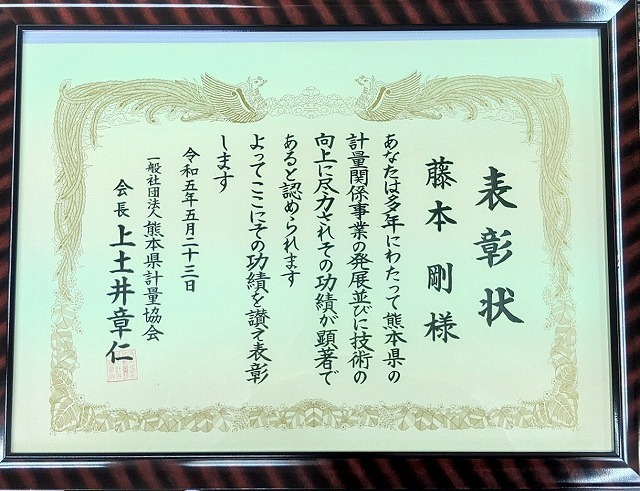 表彰状
藤本剛様
あなたは多年にわたって熊本県の
計量関係事業の発展並びに技術の
向上に尽力されその功績が顕著で
あると認められます
よってここにその功績を讃え表彰
します
令和五年五月二十三日
一般社団法人熊本県計量協会
会長上土井章仁